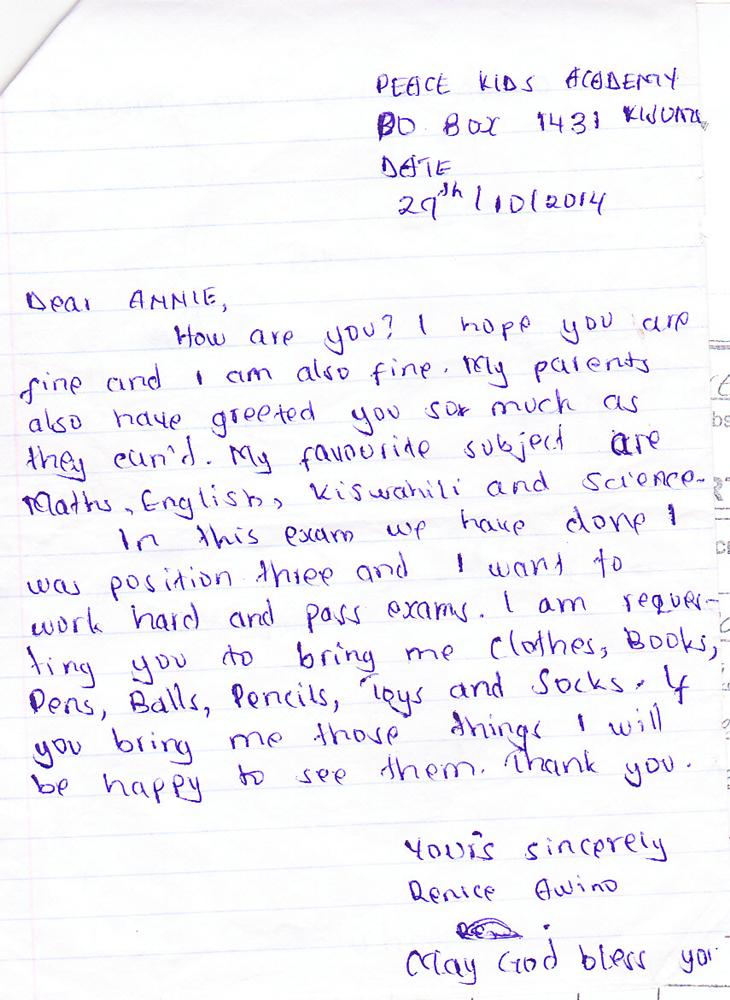 PEACE KIDS ACADEMY
PO BOX 1431
DATE
29th/10/2014
Dear ANNIE,
How are you? I hope you are
fine and I am also fine. My parents
also have greeted you sor much as
they can'd. My favourite subject are
Maths, English, Kiswahili and Science.
In this exam we have done I
was position three and I want to
work hard and pass exams. I am reques-
ting you to bring me Clothes, Books,
Pens, Balls, Pencils, Toys and Socks. If
you bring me those things I will
be happy to see them. Thank you.
Yours sincerely
Renice Awino
May God bless you